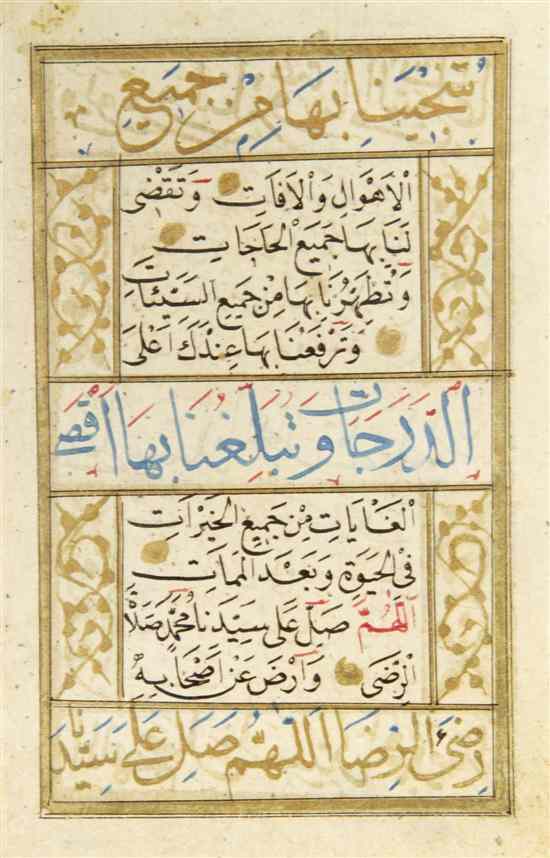 تُنْجِينَا بِهَا مِنْ جَمِيعِ
الْاَهْوَالِ وَالْاٰفَاتِ وَتَقْضٖى
لَنَا بِهَا جَمِيعَ الْحَاجَاتِ
وَتُطَهِّرُنَا بِهَا مِنْ جَمِيعِ السَّيِّئَاتِ
وَتَرْفَعُنَا بِهَا عِنْدَكَ اَعْلَى
الدَّرَجَاتِ وَتُبَلِّغُنَا بِهَا اَقْصَى
الْغَايَاتِ مِنْ جَمِيعِ الْخَيْرَاتِ
فِى الْحَيٰوةِ وَبَعْدَ الْمَمَاتِ
اَللّٰهُمَّ صَلِّ عَلٰى سَيِّدِنَا مُحَمَّدٍ صَلَاةَ
الرِّضٰى وَارْضَ عَنْ اَصْحَابِهِ
رِضَى الرِّضَا اَللّٰهُمَّ صَلِّ عَلٰى سَيِّدِنَا